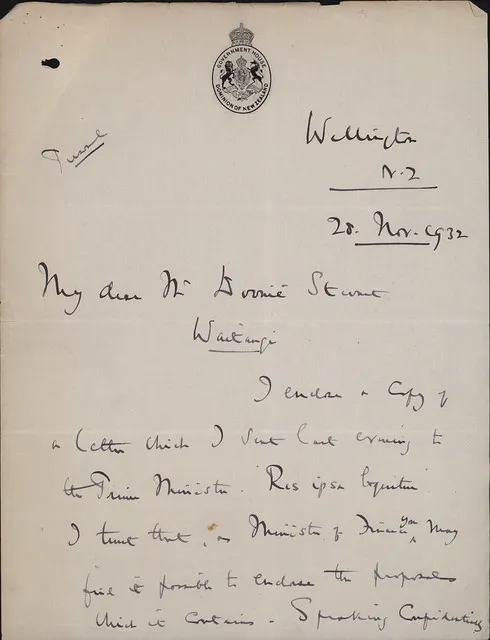 GOVERNMENT HOUSE
DOMINION OF NEW ZEALAND
Wellington
N.Z
28. Nov. 1932
My dear Mr Downie Stewart
Waitangi
I enclose a copy of
a letter which I sent last evening to
the Prime Minister. "Res ipsa loquitur"
I trust that, as Minister of Finance, you may
find it possible to endorse the proposals
which it contains - Speaking Confidentially